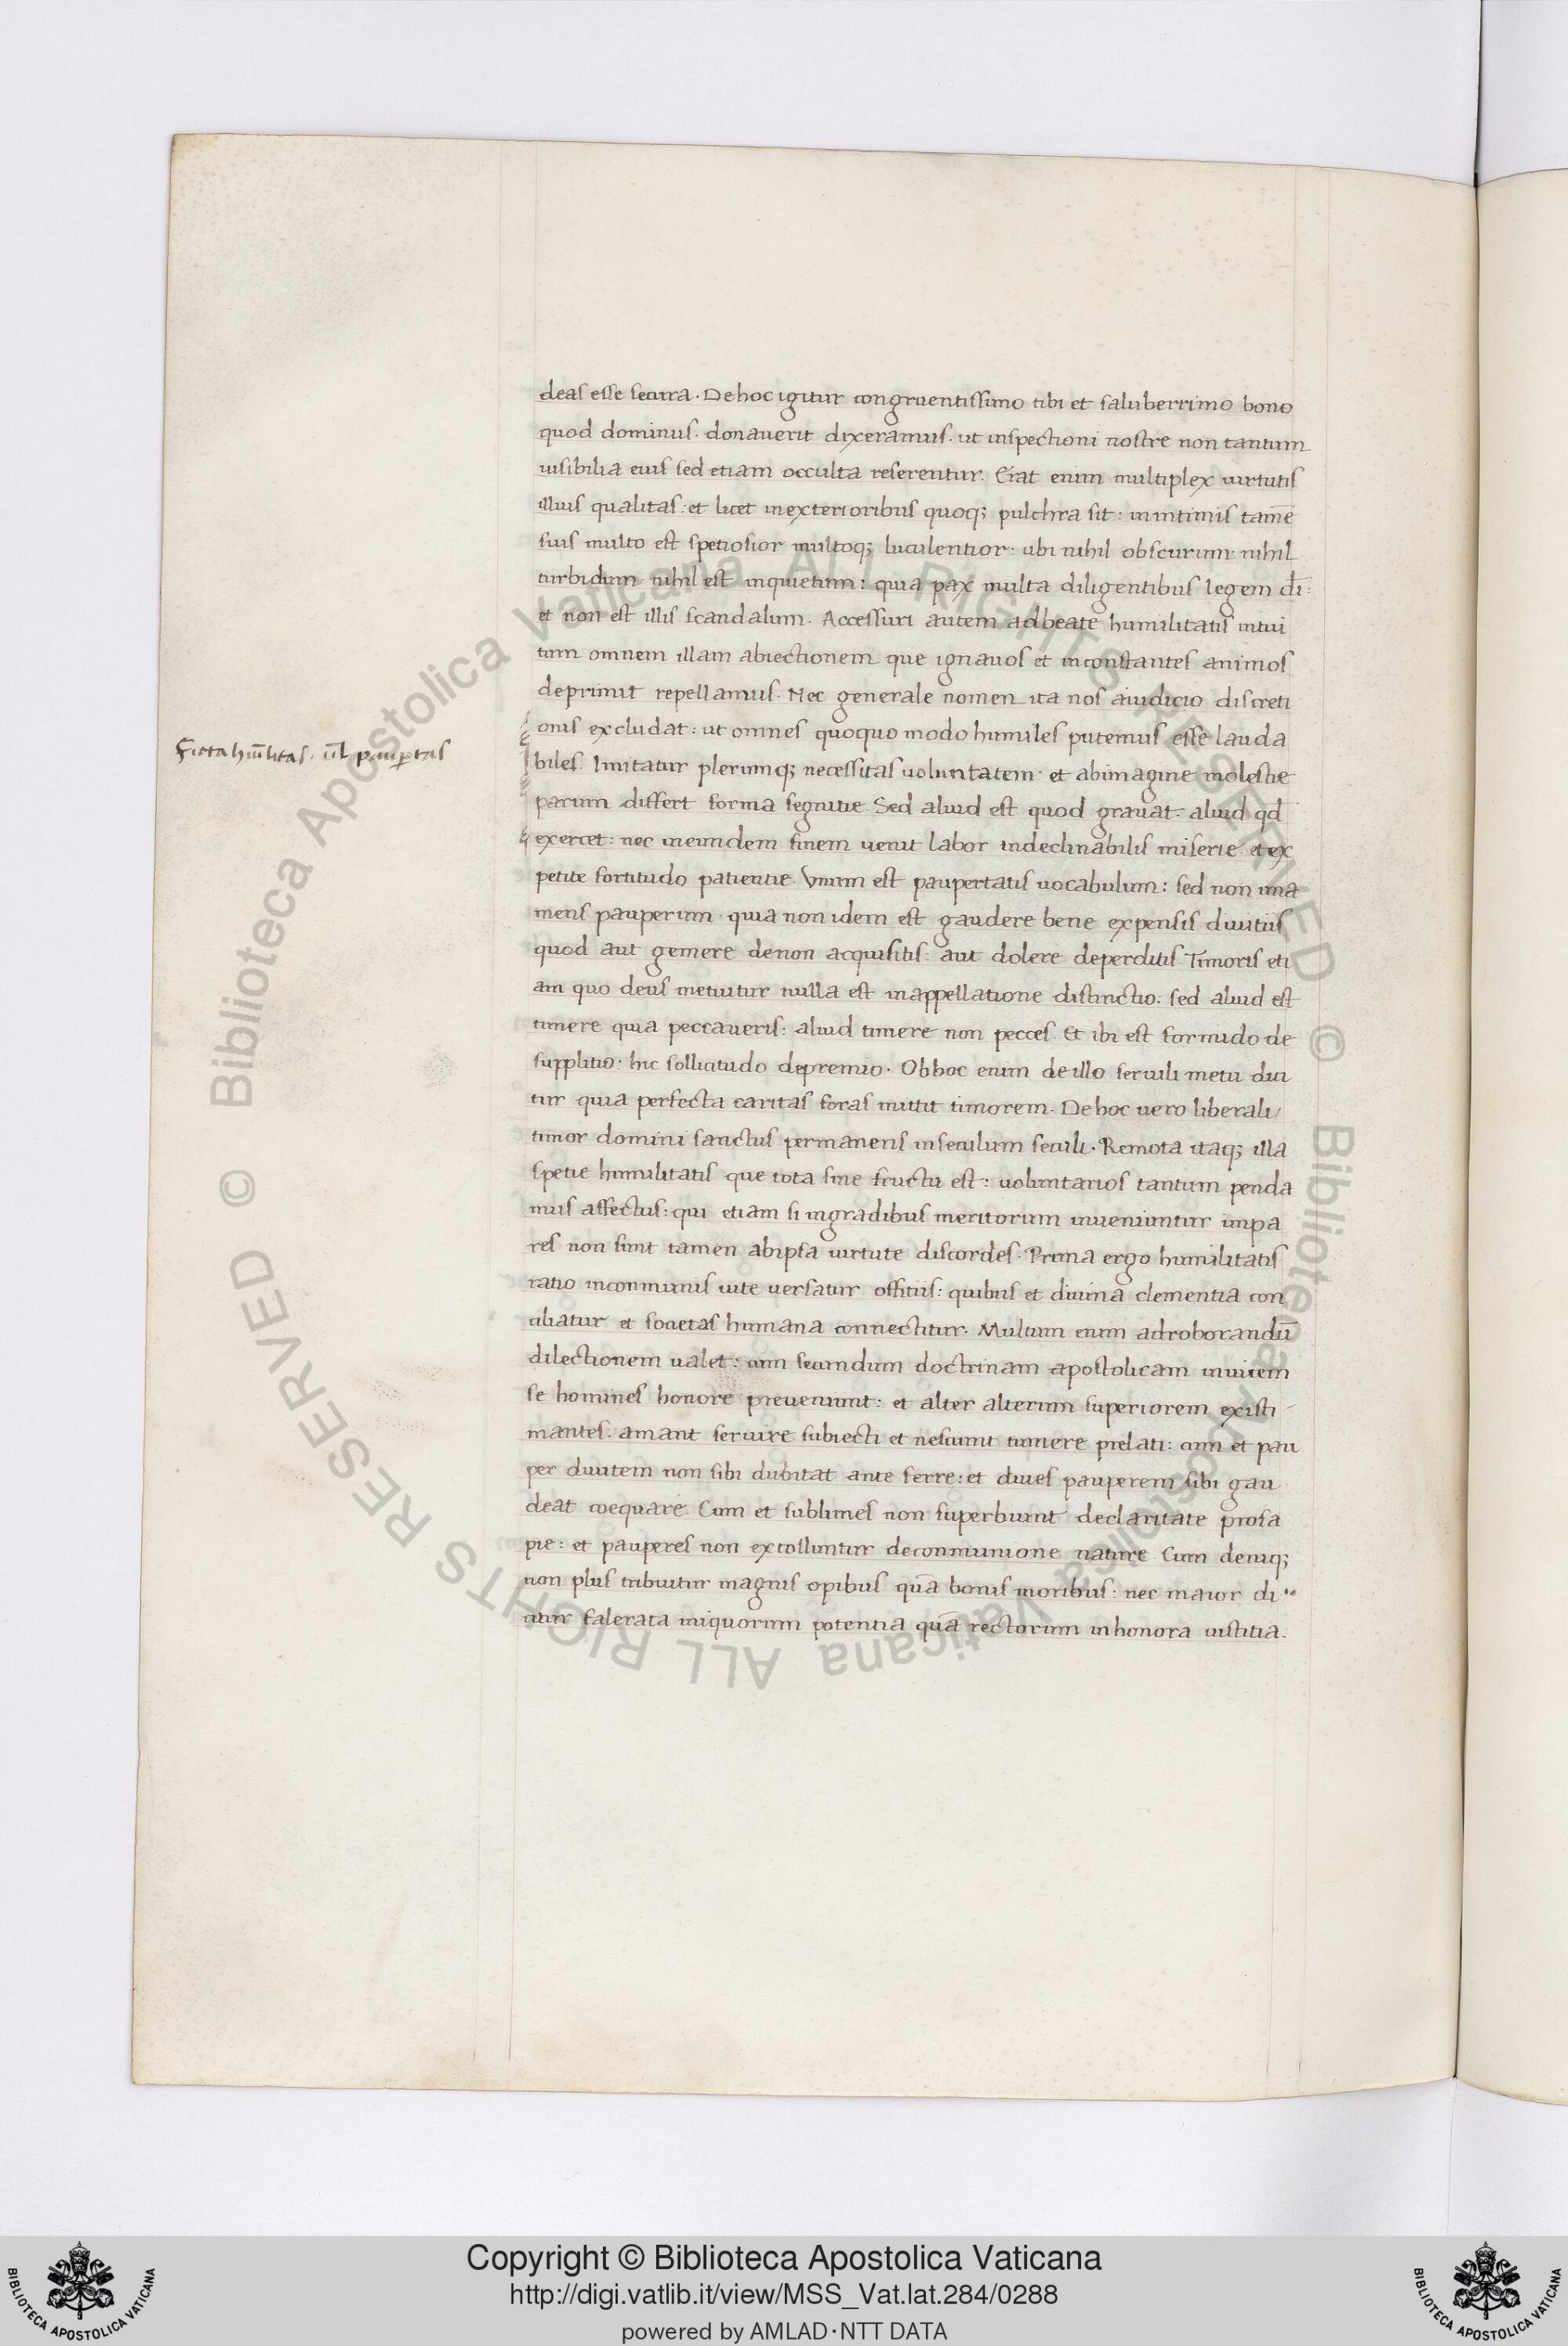 deas esse secura. De hoc igitur congruentissimo tibi et saluberrimo bono
quod dominus. donauerit dixeramus. ut inspectioni nostre non tantum
uisibilia eius sed etiam occulta reserentur. Erat enim multiplex uirtutis
illius qualitas: et licet inexterioribus quoq; pulchra sit: inintimis tamē
suis multo est spetiosior multoq; luculentior: ubi nihil obscurum. nihil
turbidum nihil est inquietum: quia pax multa diligentibus legem dī:
et non est illis scandalum. Accessuri autem adbeate humilitatis intui
tum omnem illam abiectionem que ignauos et inconstantes animos
deprimit repellamus. Nec generale nomen ita nos aiudicio discreti
onis excludat: ut omnes quoquo modo humiles putemus esse lauda
biles. Imitatur plerumq; necessitas uoluntatem. et abimagine molestie
parum differt forma segnitie. Sed aliud est quod grauat. aliud qd
exercet: nec ineundem finem uenit labor indeclinabilis miserie et ex
petite fortitudo patientie. Vnum est paupertatis uocabulum: sed non una
mens pauperum. quia non idem est gaudere bene expensis diuitiis
quod aut gemere denon acquisitis: aut dolere deperditis. Timoris eti
am quo deus metuitur nulla est inappellatione distinctio: sed aliud est
timere quia peccaueris: aliud timere non pecces. Et ibi est formido de
supplitio: hic sollicitudo depremio. Obhoc enim de illo seruili metu dici
tur quia perfecta caritas foras mittit timorem. De hoc uero liberali
timor domini sanctus permanens inseculum seculi. Remota itaq; illa
spetie humilitatis que tota sine fructu est: uoluntarios tantum penda
mus affectus: qui etiam si ingradibus meritorum inueniuntur impa
res non sunt tamen abipsa uirtute discordes. Prima ergo humilitatis
ratio inconmunis uite uersatur offitiis: quibus et diuina clementia con
ciliatur et societas humana connectitur. Multum enim adroborandū
dilectionem ualet: cum secundum doctrinam apostolicam inuicem
se homines honore preueniunt: et alter alterum superiorem existi
mantes. amant seruire subiecti et nesciunt tumere prelati: cum et pau
per diuitem non sibi dubitat ante ferre: et diues pauperem sibi gau
deat coequare. Cum et sublimes non superbiunt declaritate prosa
pie: et pauperes non extolluntur deconmunione nature. Cum deniq;
non plus tribuitur magnis opibus quā bonis moribus: nec maior di
citur falerata iniquorum potentia quā rectorum inhonora iustitia.
Ficta hūilitas. uel paupertas
Copyright © Biblioteca Apostolica Vaticana
http://digi.vatlib.it/view/MSS_Vat.lat.284/0288
powered by AMLAD·NTT DATA
BIBLIOTECA APOSTOLICA VATICANA
BIBLIOTECA APOSTOLICA VATICANA
© Biblioteca Apostolica Vaticana ALL RIGHTS RESERVED
© Biblioteca Apostolica Vaticana ALL RIGHTS RESERVED